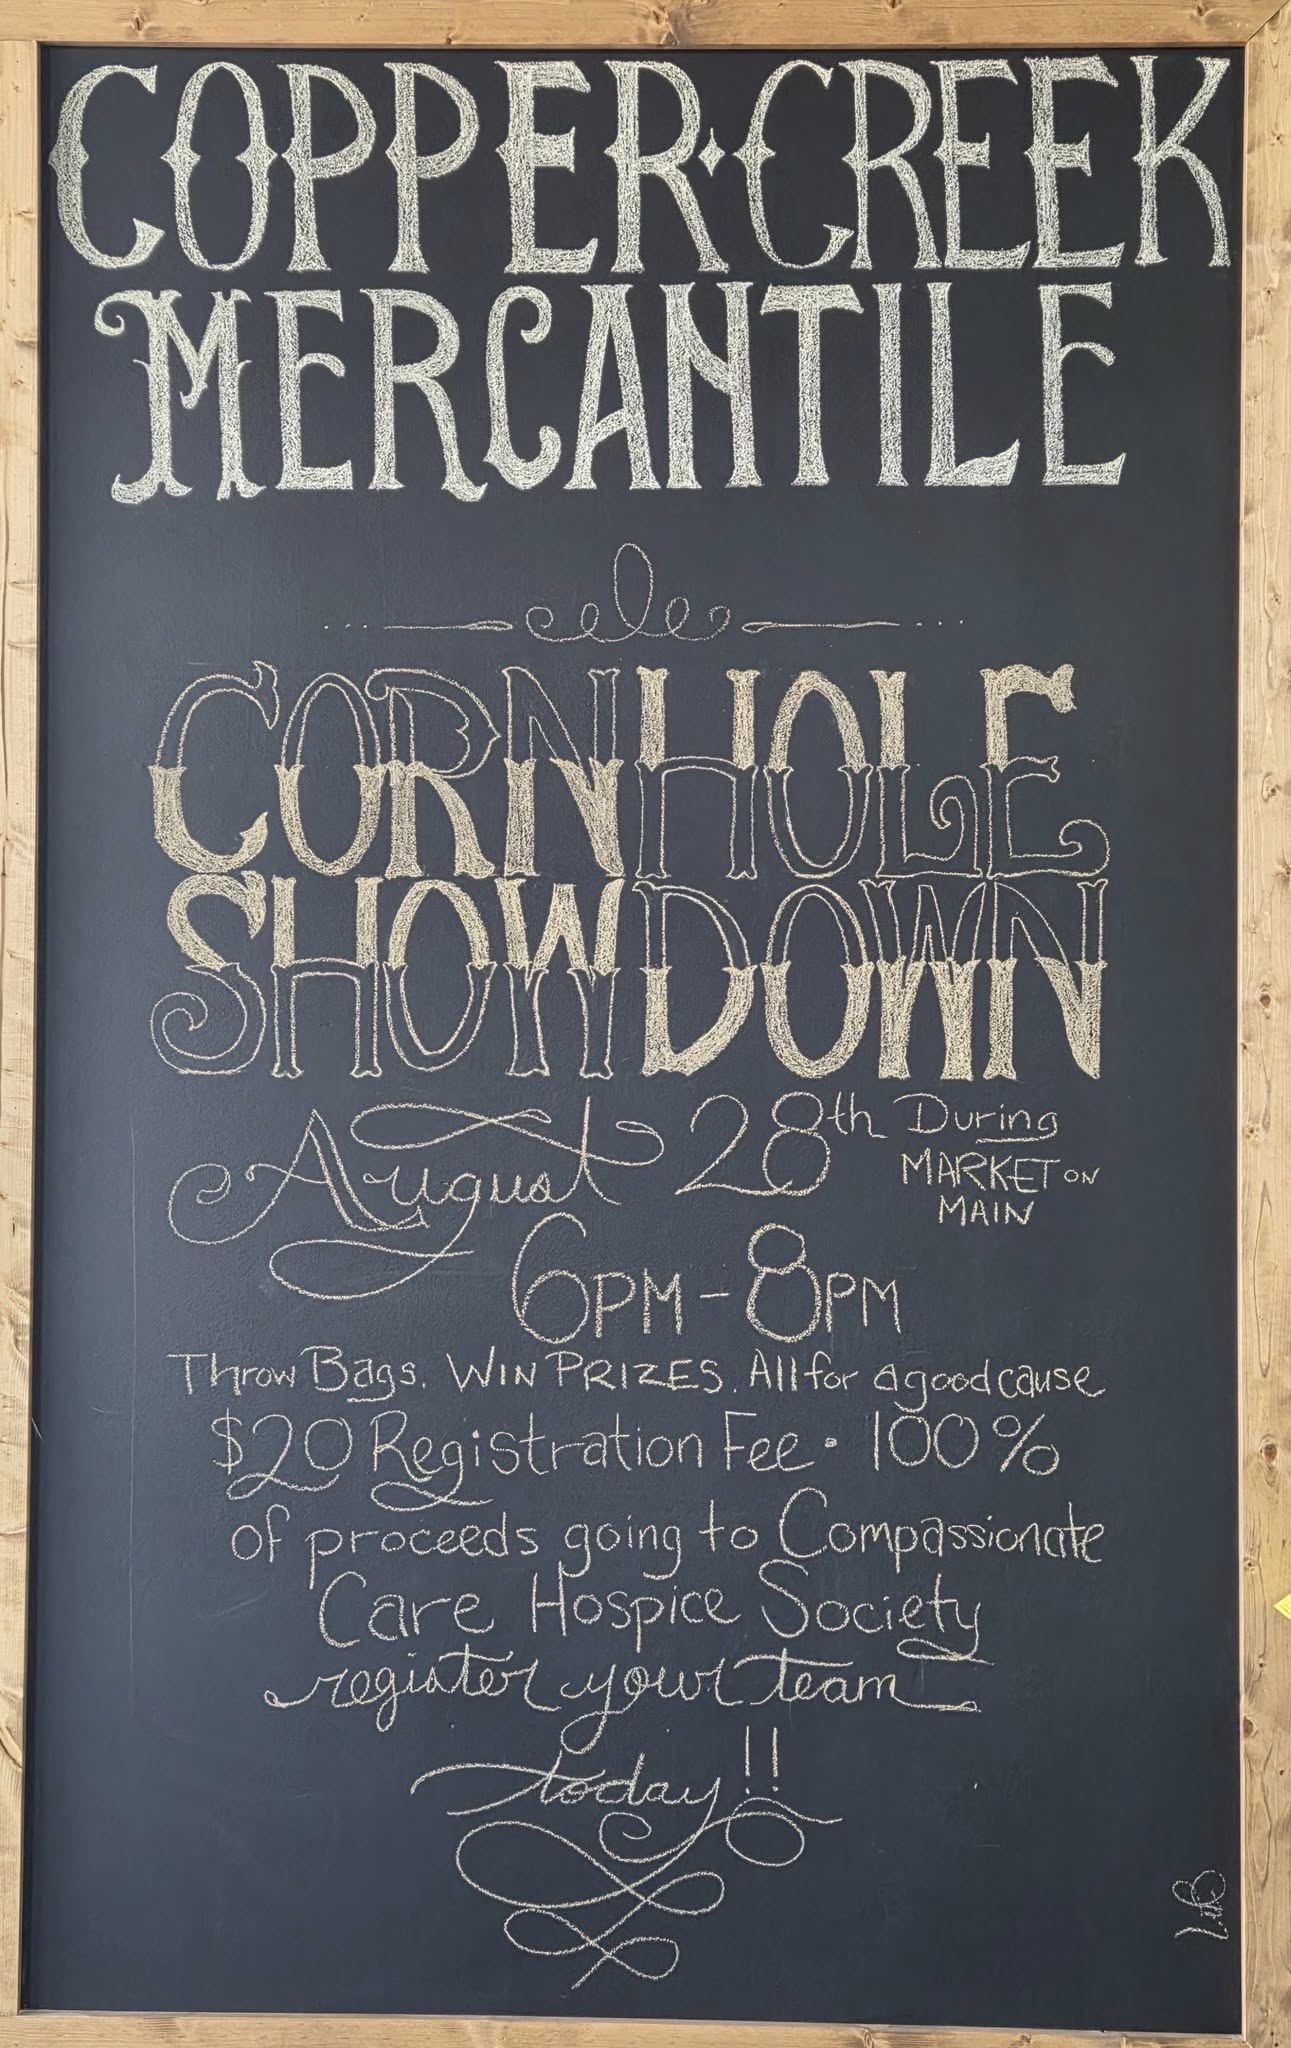 COPPER·CREEK
MERCANTILE
CORNHOLE
SHOWDOWN
August 28th During
MARKET ON
MAIN
6PM - 8PM
Throw Bags. WIN PRIZES. All for a good cause
$20 Registration Fee · 100%
of proceeds going to Compassionate
Care Hospice Society
register your team
today!!